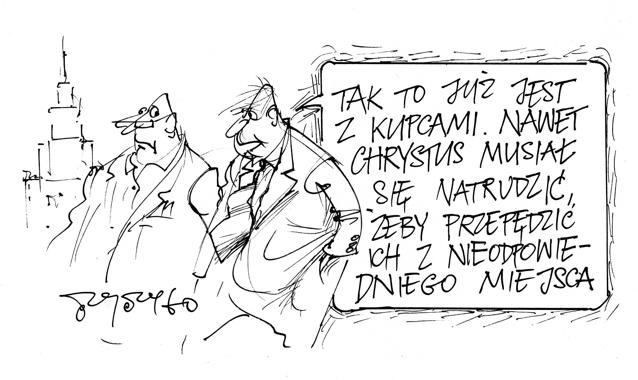 TAK TO JUŻ JEST
Z KUPCAMI. NAWET
CHRYSTUS MUSIAŁ
SIĘ NATRUDZIĆ,
ŻEBY PRZEPĘDZIĆ
ICH Z NIEODPOWIE-
DNIEGO MIEJSCA